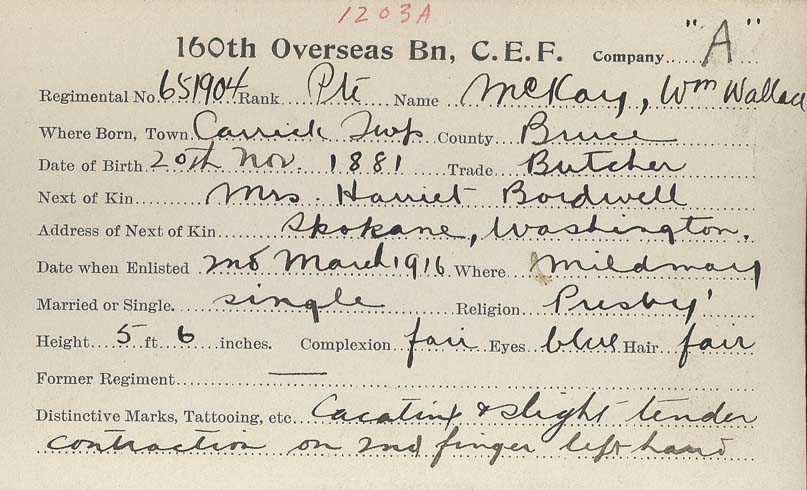 1203A
160th Overseas Bn, C.E.F. Company "A"
Regimental No. 651904 Rank Pte Name McKay, Wm Wallace
Where Born, Town Carrick Twp County Bruce
Date of Birth 20th Nov. 1881 Trade Butcher
Next of Kin Mrs. Harriet Bordwell
Address of Next of Kin Spokane, Washington.
Date when Enlisted 2nd March 1916 Where Mildmay
Married or Single. single Religion Presby'
Height 5 ft 6 inches. Complexion fair Eyes blue Hair fair
Former Regiment —
Distinctive Marks, Tattooing, etc & slight tender
contraction on 2nd finger left hand